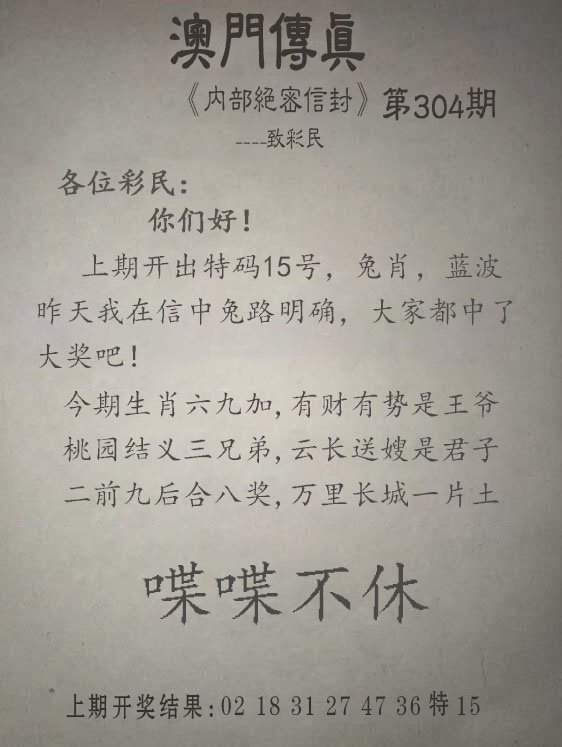 澳門傳眞
《内部絕密信封》第304期
----致彩民
各位彩民：
你们好！
上期开出特码15号，兔肖，蓝波
昨天我在信中兔路明确，大家都中了
大奖吧！
今期生肖六九加,有财有势是王爷
桃园结义三兄弟,云长送嫂是君子
二前九后合八奖,万里长城一片土
喋喋不休
上期开奖结果:02 18 31 27 47 36 特 15